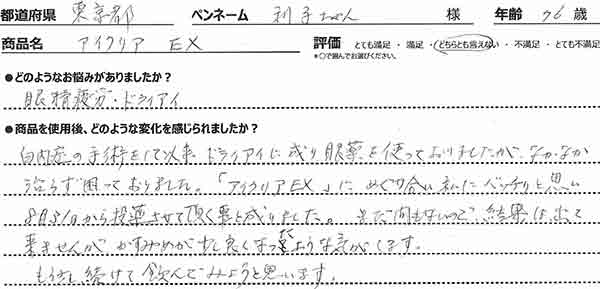 都道府県 東京都 ペンネーム 利子ちゃん 様 年齢 76 歳
商品名 アイクリア EX 評価 とても満足 ・ 満足 ・ どちらとも言えない ・ 不満足 ・ とても不満足
*○で囲んでお選びください。
●どのようなお悩みがありましたか?
眼精疲労・ドライアイ
●商品を使用後、どのような変化を感じられましたか?
白内症の手術をして以来、ドライアイに成り眼薬を使っておりましたが、なかなか
治らず困っておりました。「アイクリアEX」にめぐり合い私にバッチリと思い
8月31日から投薬させて頂く事と成りました。まだ間もないので、結果は出て
来ませんが かすみめが少し良くなったような気がします。
もう少し続けて飲んでみようと思います。